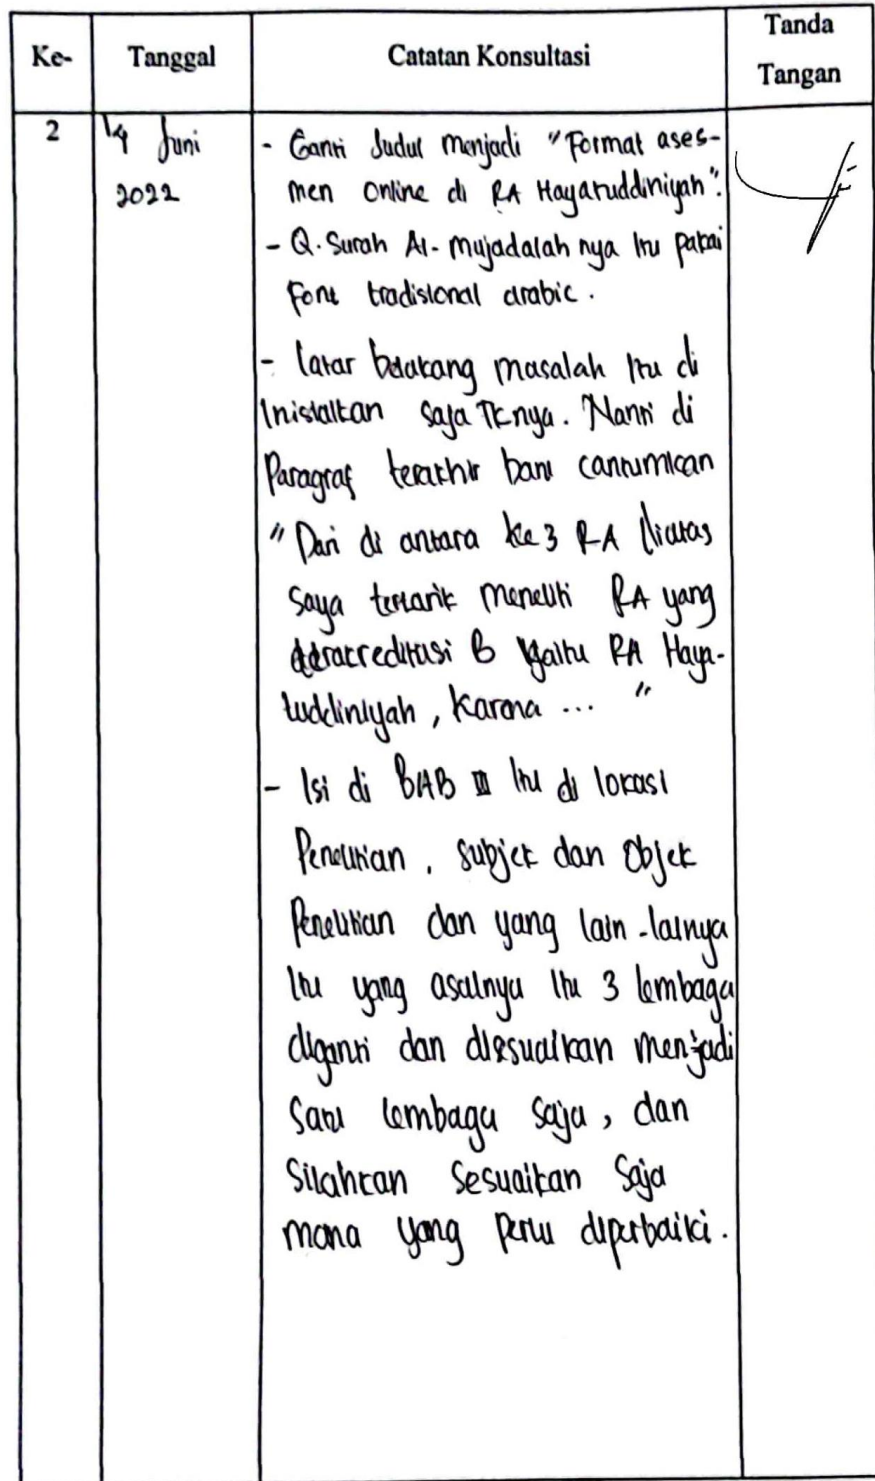 Ke- Tanggal Catatan Konsultasi Tanda Tangan
2 14 Juni 2022
- Ganti Judul menjadi "Format ases-
men Online di RA Hayatuddiniyah".
- Q. Surah Al-Mujadalah nya Itu pakai
Font tradisional arabic.
- latar belakang masalah Itu di
Inisialkan saja TKnya. Nanti di
Paragraf terakhir baru cantumkan
" Dari di antara ke 3 RA diatas
Saya tertarik meneliti RA yang
teracreditasi B Yaitu RA Haya-
tuddiniyah, Karena ... "
- Isi di BAB III Itu di lokasi
Penelitian, subjek dan Objek
Penelitian dan yang lain-lainya
Itu yang asalnya Itu 3 lembaga
diganti dan disesuaikan menjadi
Satu lembaga saja, dan
Silahkan Sesuaikan Saja
mana yang perlu diperbaiki.